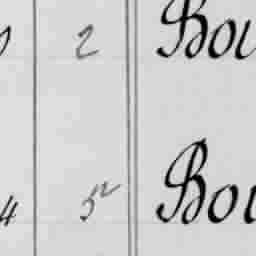 2 Bou
4 5² Bou